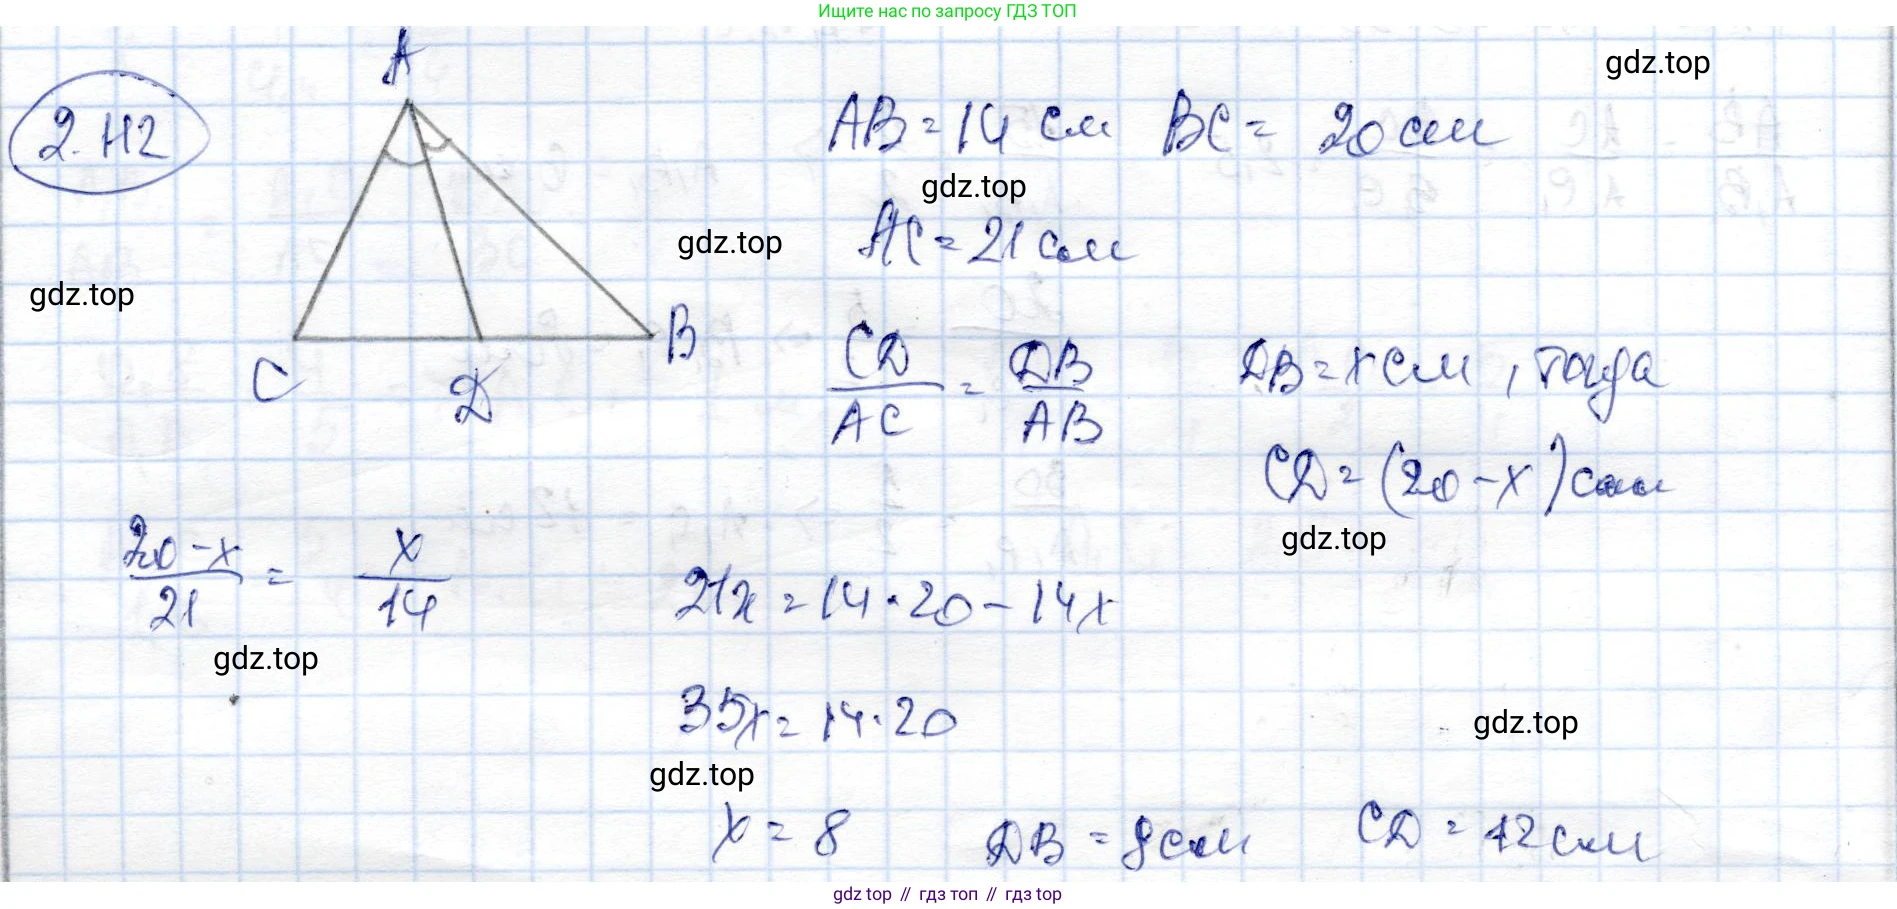 Ищите нас по запросу ГДЗ ТОП
gdz.top
2. H2
A
AB = 14 см BC = 20 см
gdz.top
AC = 21 см
gdz.top
gdz.top
C
D
B
CD/AC = DB/AB
DB = x см, тогда
CD = (20 - x) см
gdz.top
20-x/21 = x/14
21x = 14·20 - 14x
gdz.top
35x = 14·20
gdz.top
gdz.top
x = 8 DB = 8 см CD = 12 см
gdz top // гдз топ // гдз top